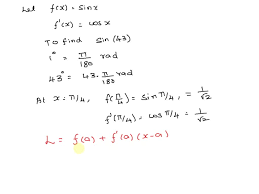 Let f(x) = sin x
f'(x) = cos x
To find sin (43)
1° = π/180 rad
43° = 43 · π/180 rad
At x = π/4, f(π/4) = sin π/4, = 1/√2
f'(π/4) = cos π/4 = 1/√2
L = f(a) + f'(a) (x-a)